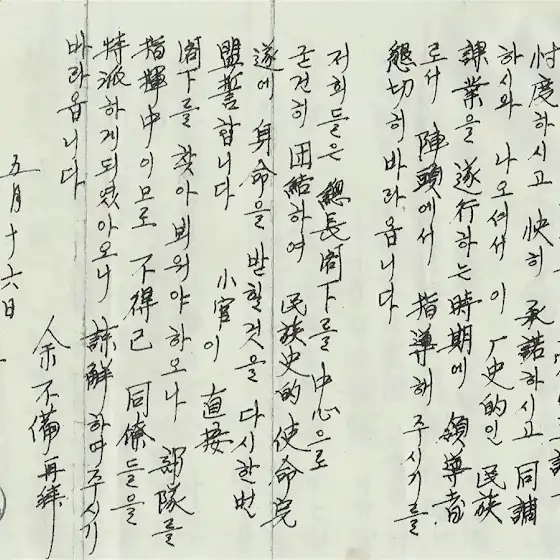 忖度하시고 快히 承諾하시고 同調
하시와 나오셔서 이 厂史的인 民族
課業을 遂行하는 時期에 領導者
로서 陣頭에서 指導해 주시기를
懇切히 바라옵니다
저희들은 總長閣下를 中心으로
굳건히 団結하여 民族史的 使命完
遂에 身命을 받힐것을 다시한번
盟誓합니다
小官이 直接
閣下를 찾아 뵈워야 하오나 部隊를
指揮中이므로 不得已 同僚들을
特派하게되였아오니 諒解하여주시기
바라옵니다
余不備再拜
五月十六日